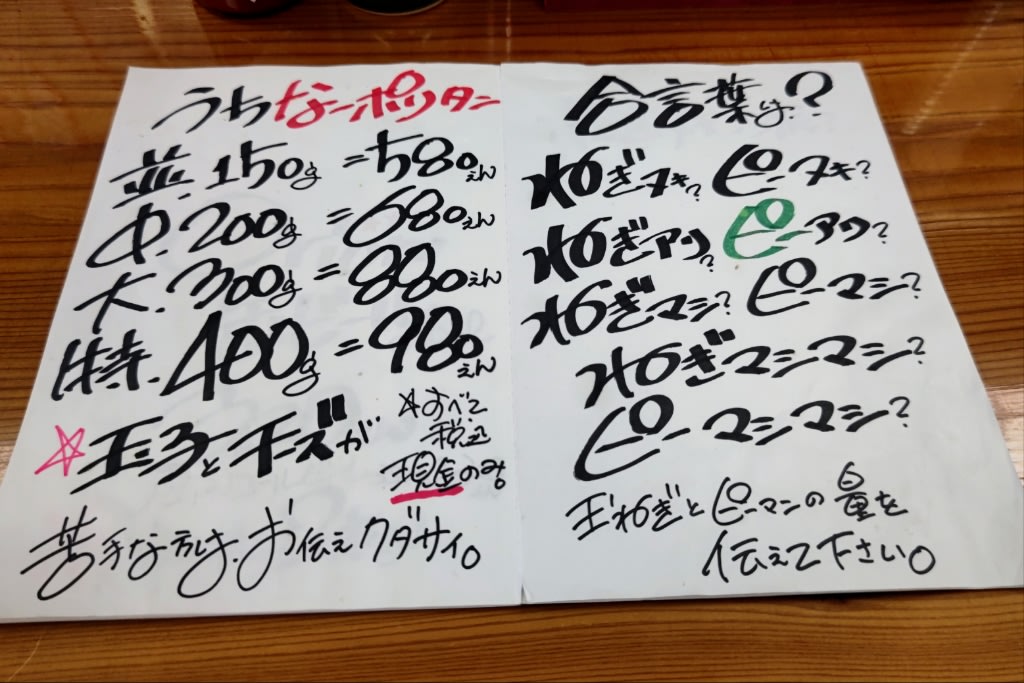 うちなーポリタン
並.150g=580えん
中.200g=680えん
大.300g=880えん
特.400g=980えん
☆玉子とチーズが
苦手な方は、お伝えクダサイ。
☆すべて
税込
現金のみ。
合言葉は?
ねぎヌキ? ピーヌキ?
ねぎアリ? ピーアリ?
ねぎマシ? ピーマシ?
ねぎマシマシ?
ピーマシマシ?
玉ねぎとピーマンの量を
伝えて下さい。